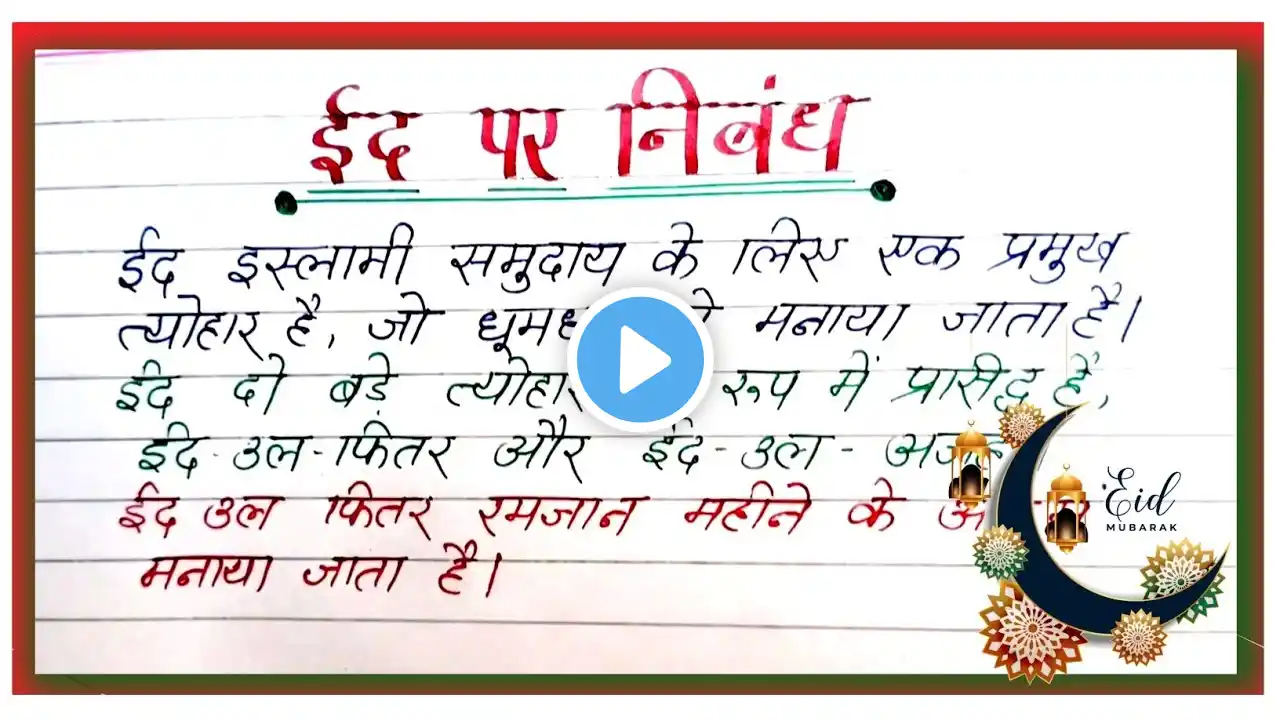 ईद पर निबंध
ईद इस्लामी समुदाय के लिए एक प्रमुख
त्योहार है, जो मनाया जाता है।
ईद दो बडे त्योहार रूप में प्रसिद्ध है,
ईद-उल-फितर और ईद-उल-
ईद उल फितर रमजान महीने के
मनाया जाता है।
Eid
MUBARAK